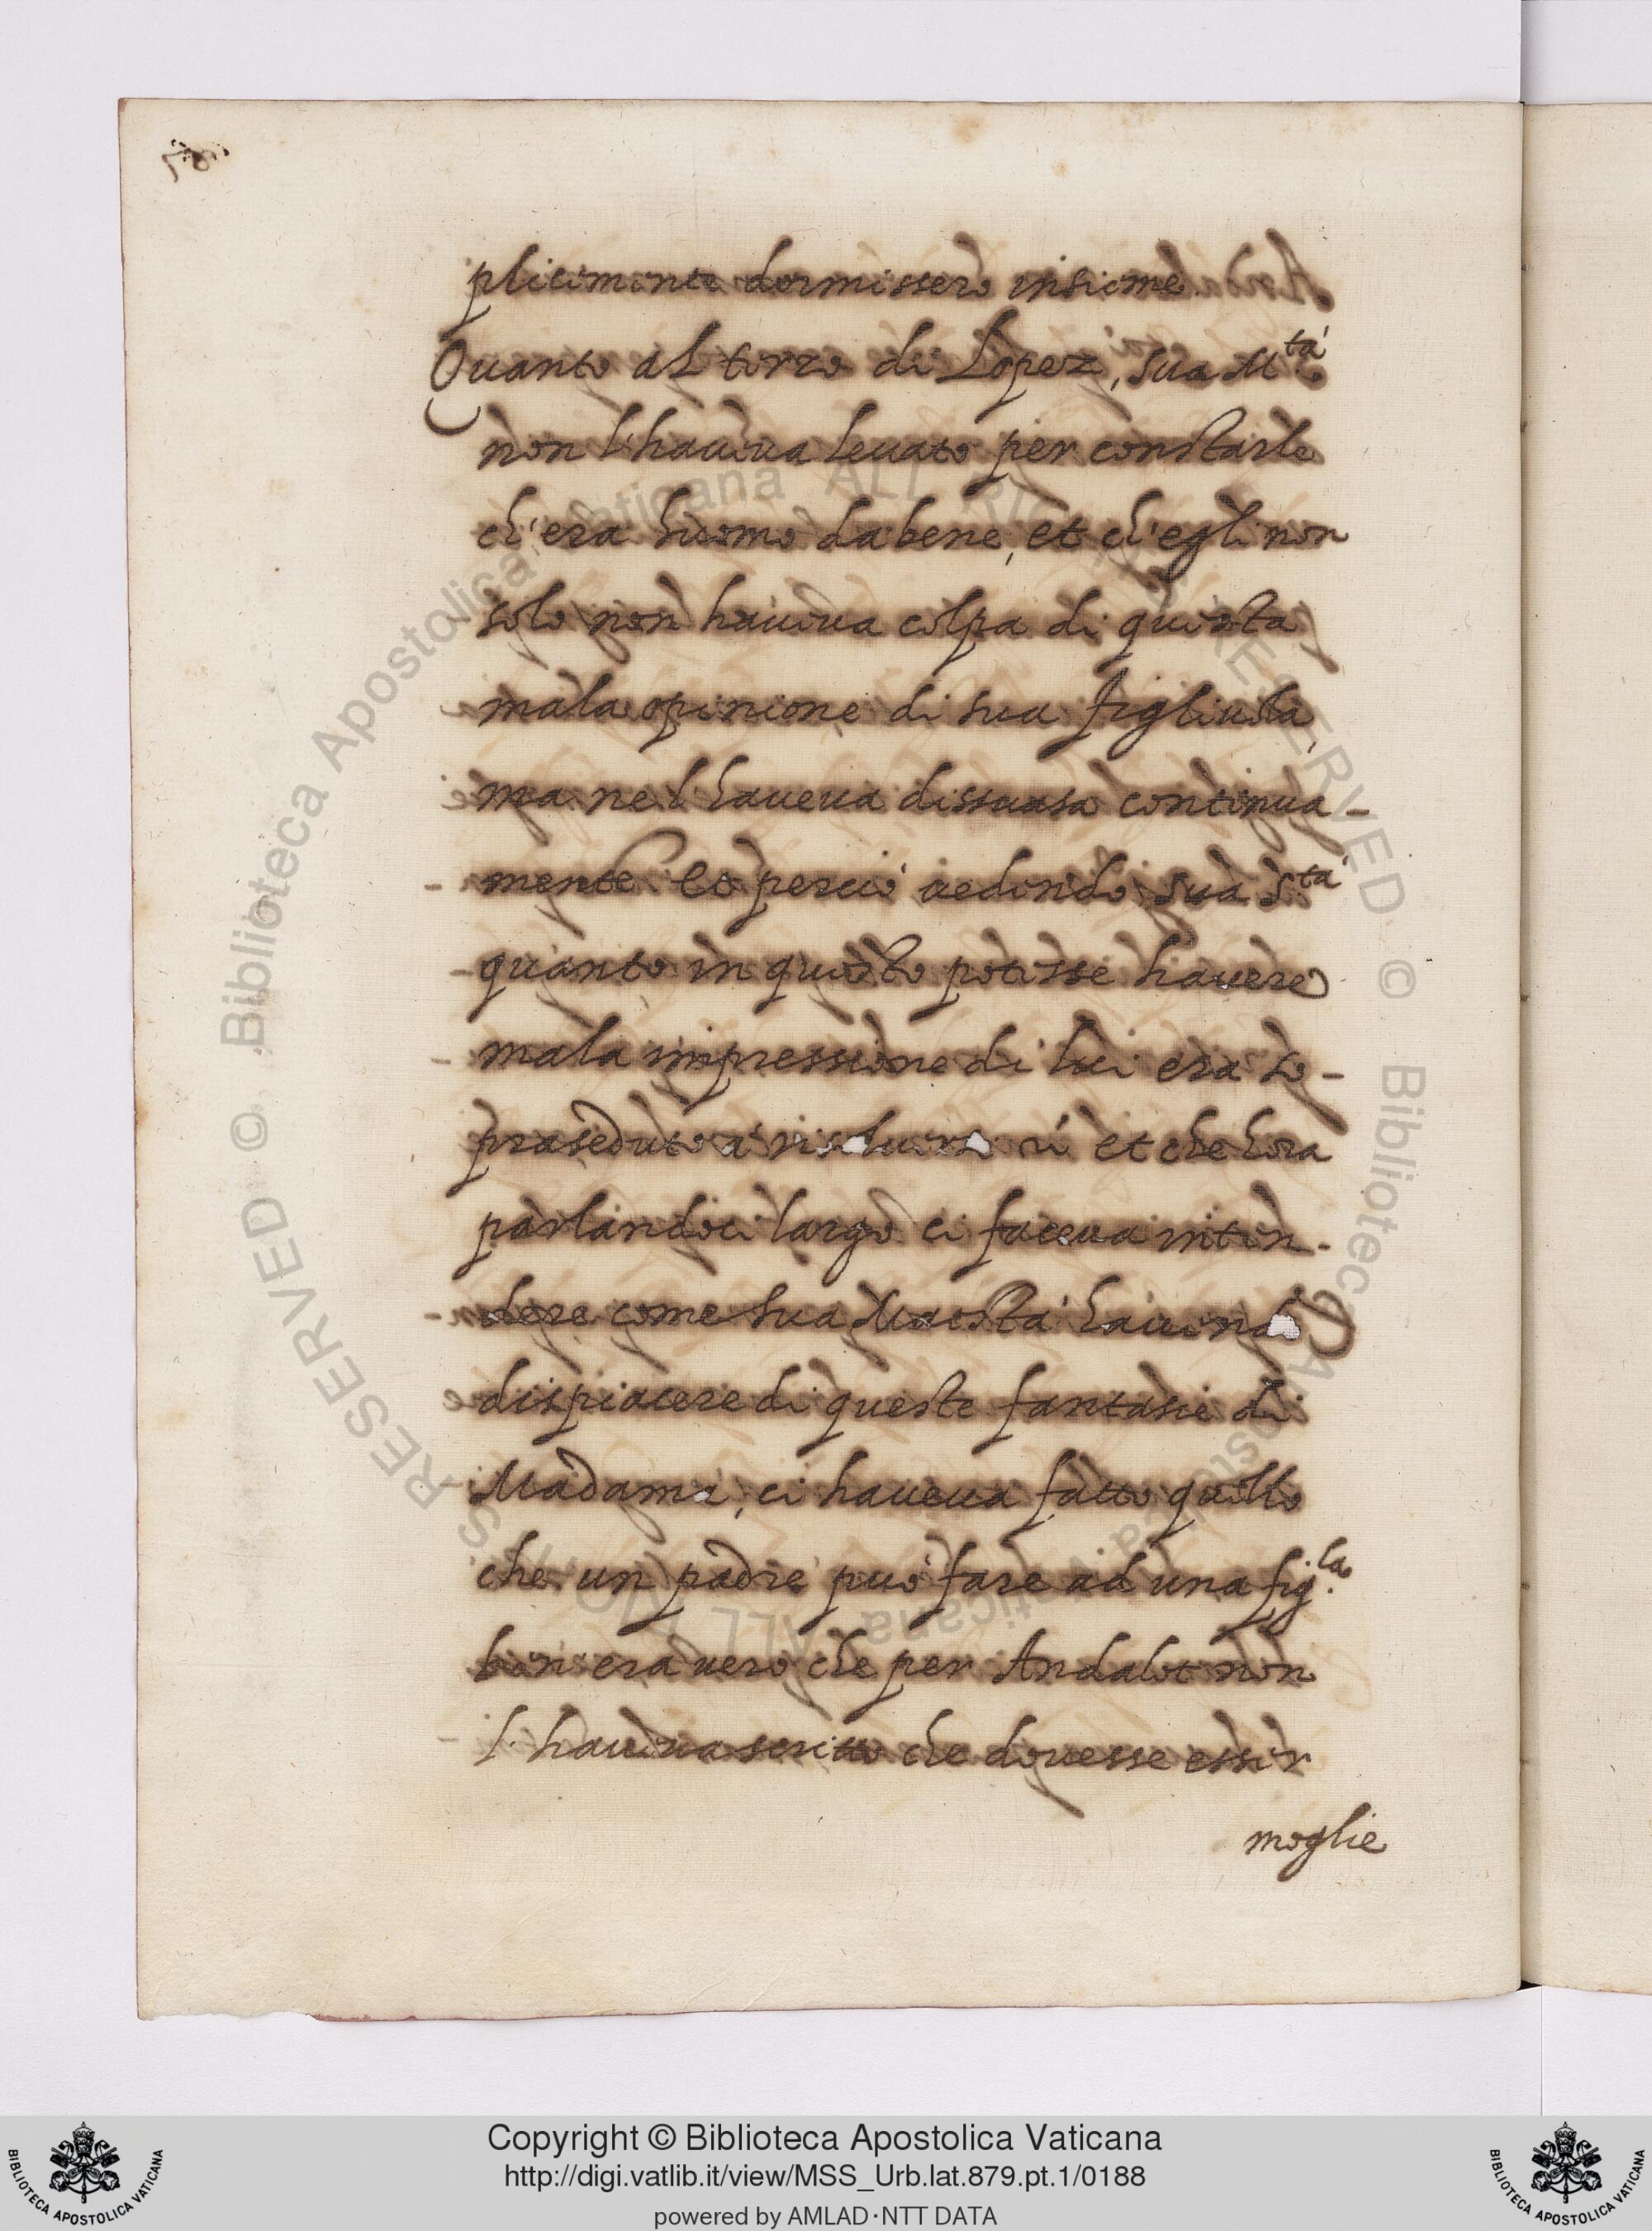 plicemente dormissero insieme
Quanto al terzo di Lopez, sua M.tà
non l'haveva levato per constarle
ch'era huomo dabene, et ch'egli non
solo non haveva colpa di questa
mala opinione di sua figliuola,
ma nel haveva dissuasa continua-
mente Et perciò vedendo sua S.tà
quanto in questo potesse havere
mala impressione di lui era so-
praseduto a et che hora
parlandoci largo ci faceva inten-
dere come sua Maestà havendo
dispiacere di queste fantasie di
Madama, ci haveva fatto quello
che un padre può fare ad una fig.la
ben era vero che per Andalot non
l'haveva scritto che dovesse esser
moglie
Copyright © Biblioteca Apostolica Vaticana
http://digi.vatlib.it/view/MSS_Urb.lat.879.pt.1/0188
powered by AMLAD·NTT DATA
BIBLIOTECA APOSTOLICA VATICANA
BIBLIOTECA APOSTOLICA VATICANA